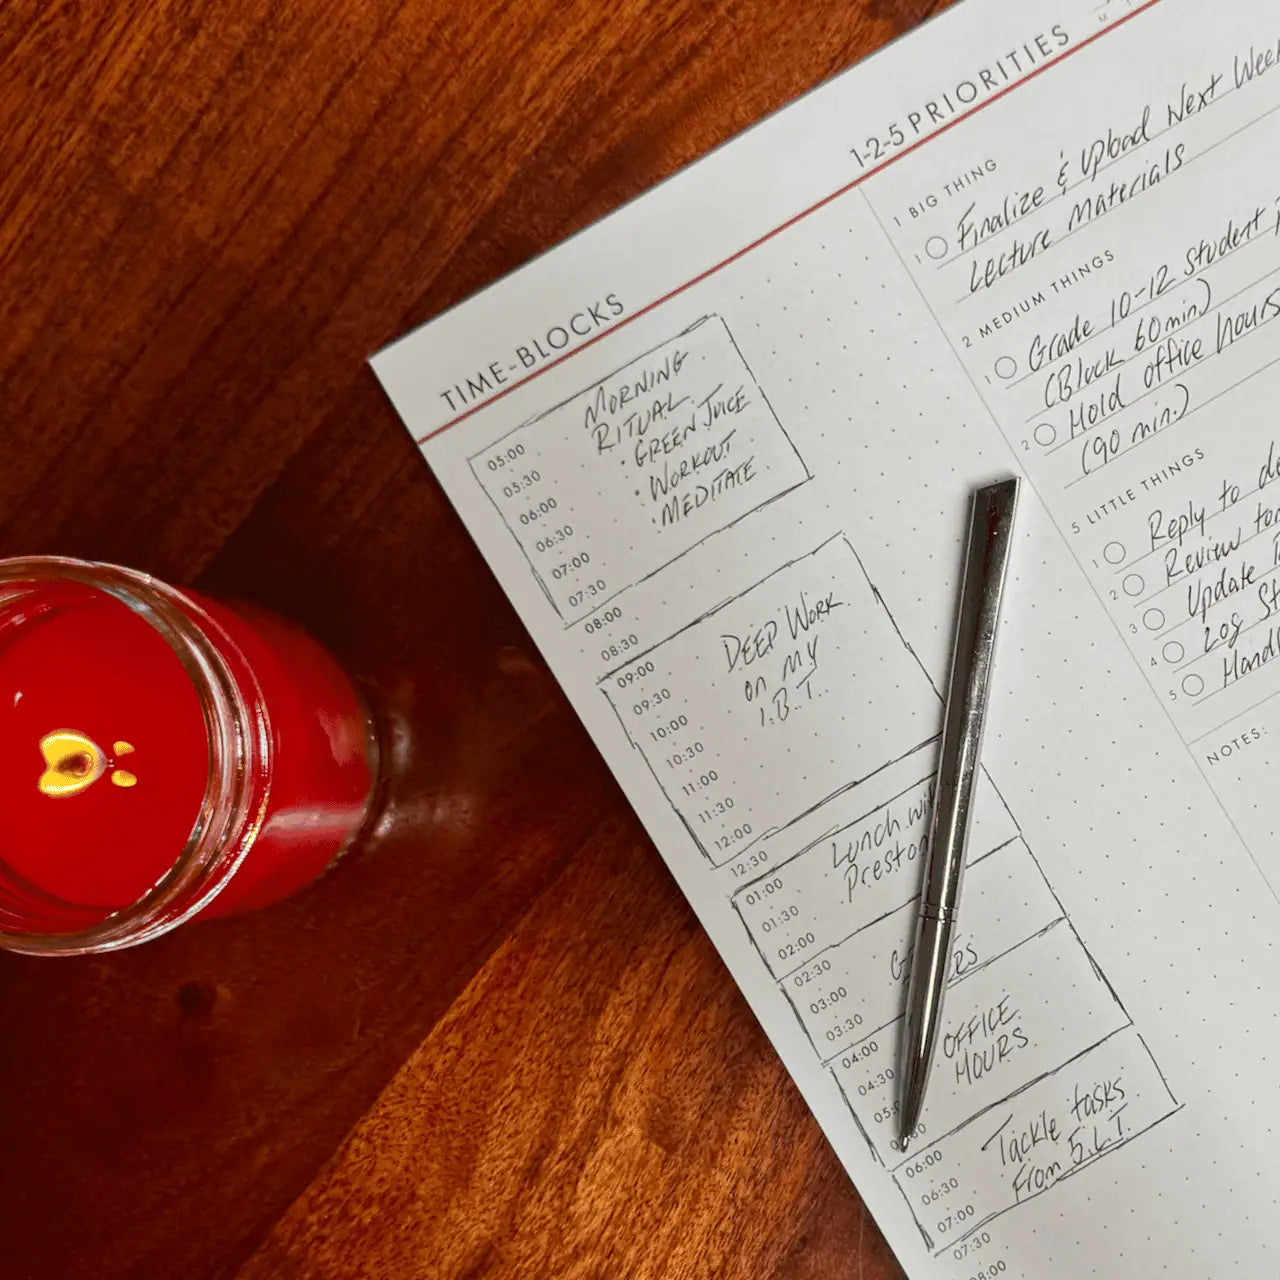 TIME-BLOCKS
05:00
05:30
06:00
06:30
07:00
07:30
08:00
08:30
09:00
09:30
10:00
10:30
11:00
11:30
12:00
12:30
01:00
01:30
02:00
02:30
03:00
03:30
04:00
04:30
06:00
06:30
07:00
07:30
08:00
MORNING
RITUAL
• GREEN JUICE
• WORKOUT
• MEDITATE
DEEP WORK
on my
1.B.T.
Lunch
Preston
OFFICE
HOURS
Tackle tasks
From 5.L.T.
1-2-5 PRIORITIES
M
1 BIG THING
1 Finalize & Upload Next Week
Lecture Materials
2 MEDIUM THINGS
1 Grade 10-12 student
(Block 60 min)
2 Hold office hours
(90 min.)
5 LITTLE THINGS
1 Reply to
2 Review
3 Update
4 Log
5
NOTES: